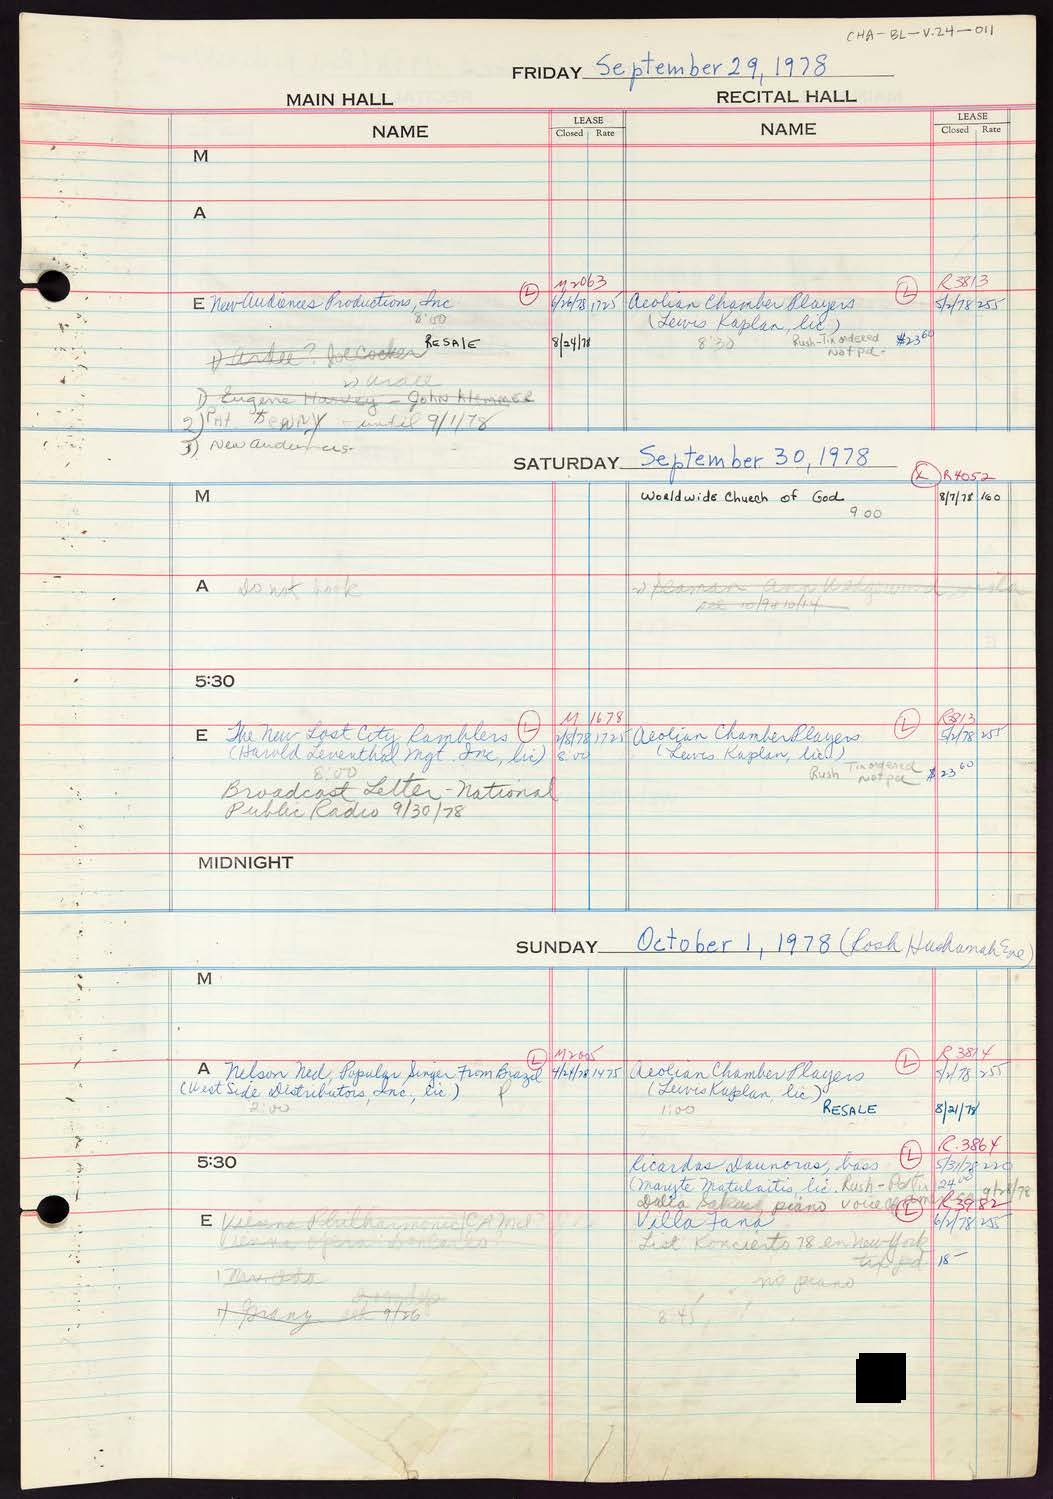 CHA-BL-V.24-011
FRIDAY September 29, 1978
MAIN HALL RECITAL HALL
NAME LEASE Closed Rate NAME LEASE Closed Rate
M
A
M2063 R3813
E New Audiences Productions, Inc L 6/26/78 1725 Aeolian Chamber Players L 5/2/78 255
8:00 (Lewis Kaplan, lic)
RESALE 8/24/78 8:30 Rush-Tix ordered $23.60
1) Joe Cocker Not pd-
1) Eugene Harvey - John Klemmer
2) - until 9/1/78
3) New Audiences
SATURDAY September 30, 1978
R4052
M Worldwide Church of God 8/7/78 160
9:00
A Do not book
see 10/9 + 10/14
5:30
M 1678 R3813
E The New Lost City Ramblers L 2/8/78 1725 Aeolian Chamber Players L 5/2/78 255
(Harold Leventhal Mgt. Inc, lic) 8:00 (Lewis Kaplan, lic)
8:00 Rush Tix ordered Not pd $23.60
Broadcast Letter - National
Public Radio 9/30/78
MIDNIGHT
SUNDAY October 1, 1978 (Rosh Hashanah Eve)
M
L M2005 R3814
A Nelson Ned, Popular Singer From Brazil 4/21/78 1475 Aeolian Chamber Players L 5/2/78 255
(West Side Distributors, Inc., lic) (Lewis Kaplan, lic)
2:00 1:00 RESALE 8/21/78
R.3864
5:30 Ricardas Daunoras, bass L 5/31/78 220
(Maryte Matulaitis, lic. Rush - 24.00
Dalia piano voice 9/28/78
L R3982
E Vienna Philharmonic Villa Fana 6/2/78 255
Vienna Opera List Konzierto 78 en New York
tix pd 18-
no piano
1) Granz 9/26 8:45